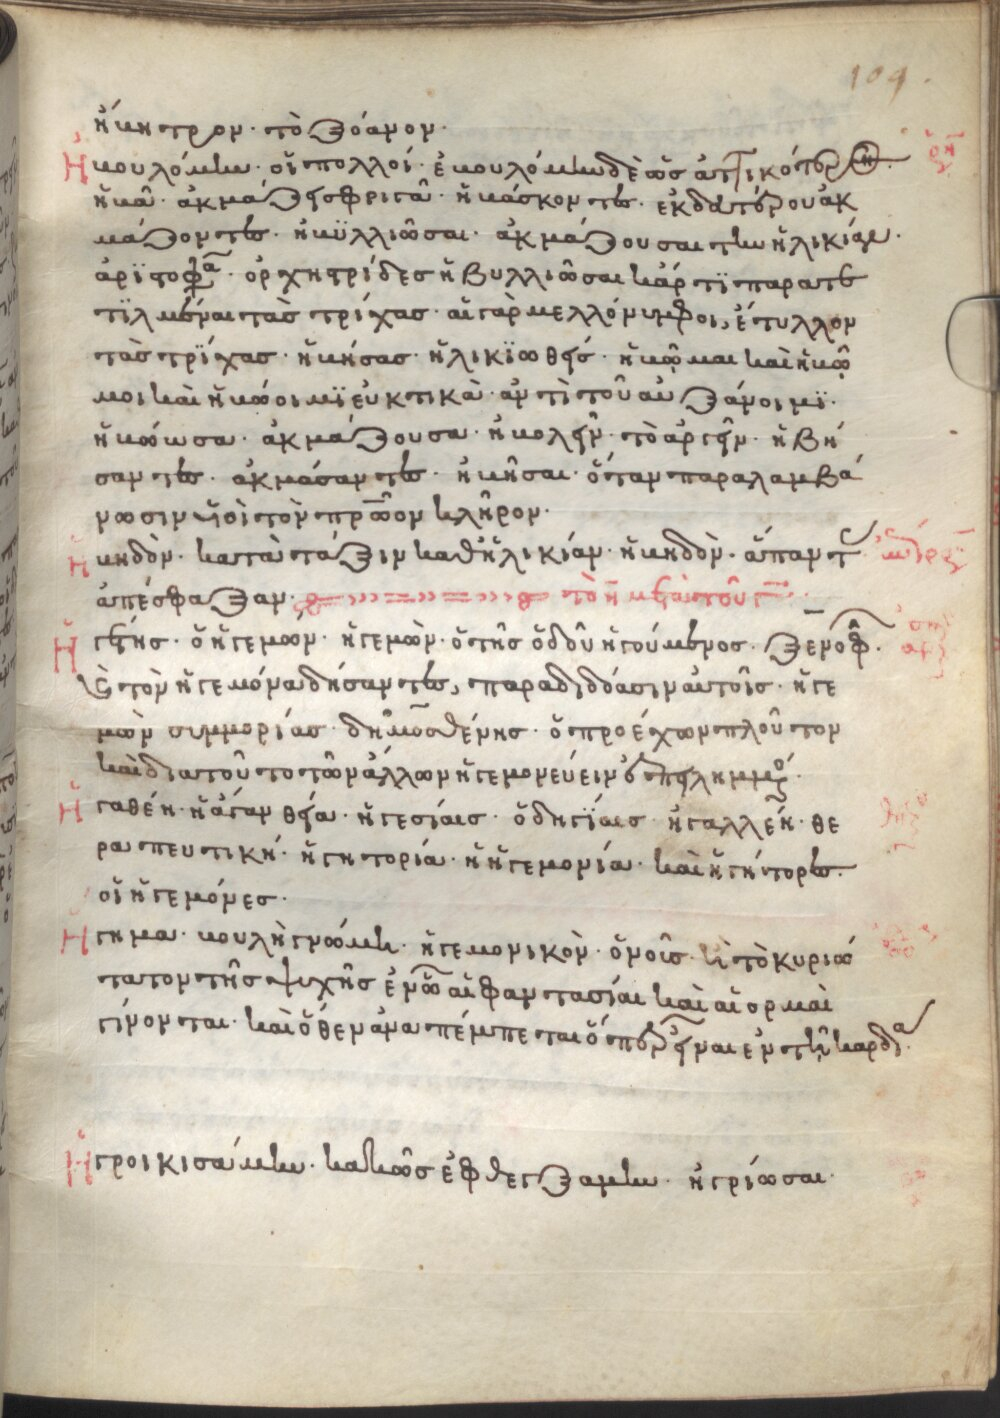 109
ἤβηστρον· τὸ ξόανον·
Ἠβουλόμην· οἱ πολλοί· ἐβουλόμην δὲ ὡς ἀττικώτερ
ἡβᾶ· ἀκμάζει σφριγᾶ· ἡβάσκοντες· ἐκ δευτέρου ἀκ
μάζοντες· ἡβϋλλιῶσαι· ἀκμάζουσαι τὴν ἡλικίαν·
ἀρϊστοφα· ὀρχηστρίδες ἡβυλλιῶσαι κἄρτϊ παρατε
τϊλμέναι τὰς τρίχας· αἱ γὰρ μελλόνυμφοι, ἔτυλλον
τὰς τρίχας· ἡβήσας· ἡλικϊωθείς· ἡβῷμαι καὶ ἡβῷ
μοι καὶ ἡβώοιμϊ εὐκτικά· ἀντὶ τοῦ αὐξάνοιμϊ·
ἡβώωσα· ἀκμάζουσα· ἠβολεῖν· τὸ ἀργεῖν· ἡβή
σαντες· ἀκμάσαντες· ἡβῆσαι· ὅταν παραλαμβά
νωσιν τὸν πρῶον κλῆρον·
Ἡβηδὸν· κατὰ τάξιν καθ' ἡλικίαν· ἡβηδὸν· ἅπαντ
ἀπέσφαξαν· τὸ η μετὰ τοῦ γ
Ἡγέτης· ὁ ἡγεμών· ἡγεμὼν· ὁ τῆς ὁδοῦ ἡγούμενος· ξενοφ
καὶ τὸν ἡγεμόνα δήσαντες, παραδιδόασιν αὐτοῖς· ἡγε
μὼν συμμορίας· δημοσθένης· ὁ προέχων πλοῦτον
καὶ διατοῦτο τῶν ἄλλων ἡγεμονεύειν ἐπειλημμ
Ἠγαθέη· ἡ ἄγαν θεία· ἡγεσίαις· ὁδηγίαις· ἠγαλλέη· θε
ραπευτική· ἡγητορία· ἡ ἡγεμονία· καὶ ἡγήτορες·
οἱ ἡγεμόνες·
Ἥγημα· βουλὴ γνώμη· ἡγεμονικὸν· ὁ νοῦς· ἢ τὸ κυριώ
τατον τῆς ψυχῆς ἐν ᾧ αἱ φαντασίαι καὶ αἱ ὁρμαὶ
γίνονται· καὶ ὅθεν ἀναπέμπεται ὅπερ εἶναι ἐν τῇ καρδία
Ἠγροικισάμην· κακῶς ἐφθεγξάμην· ἠγριώσαι·